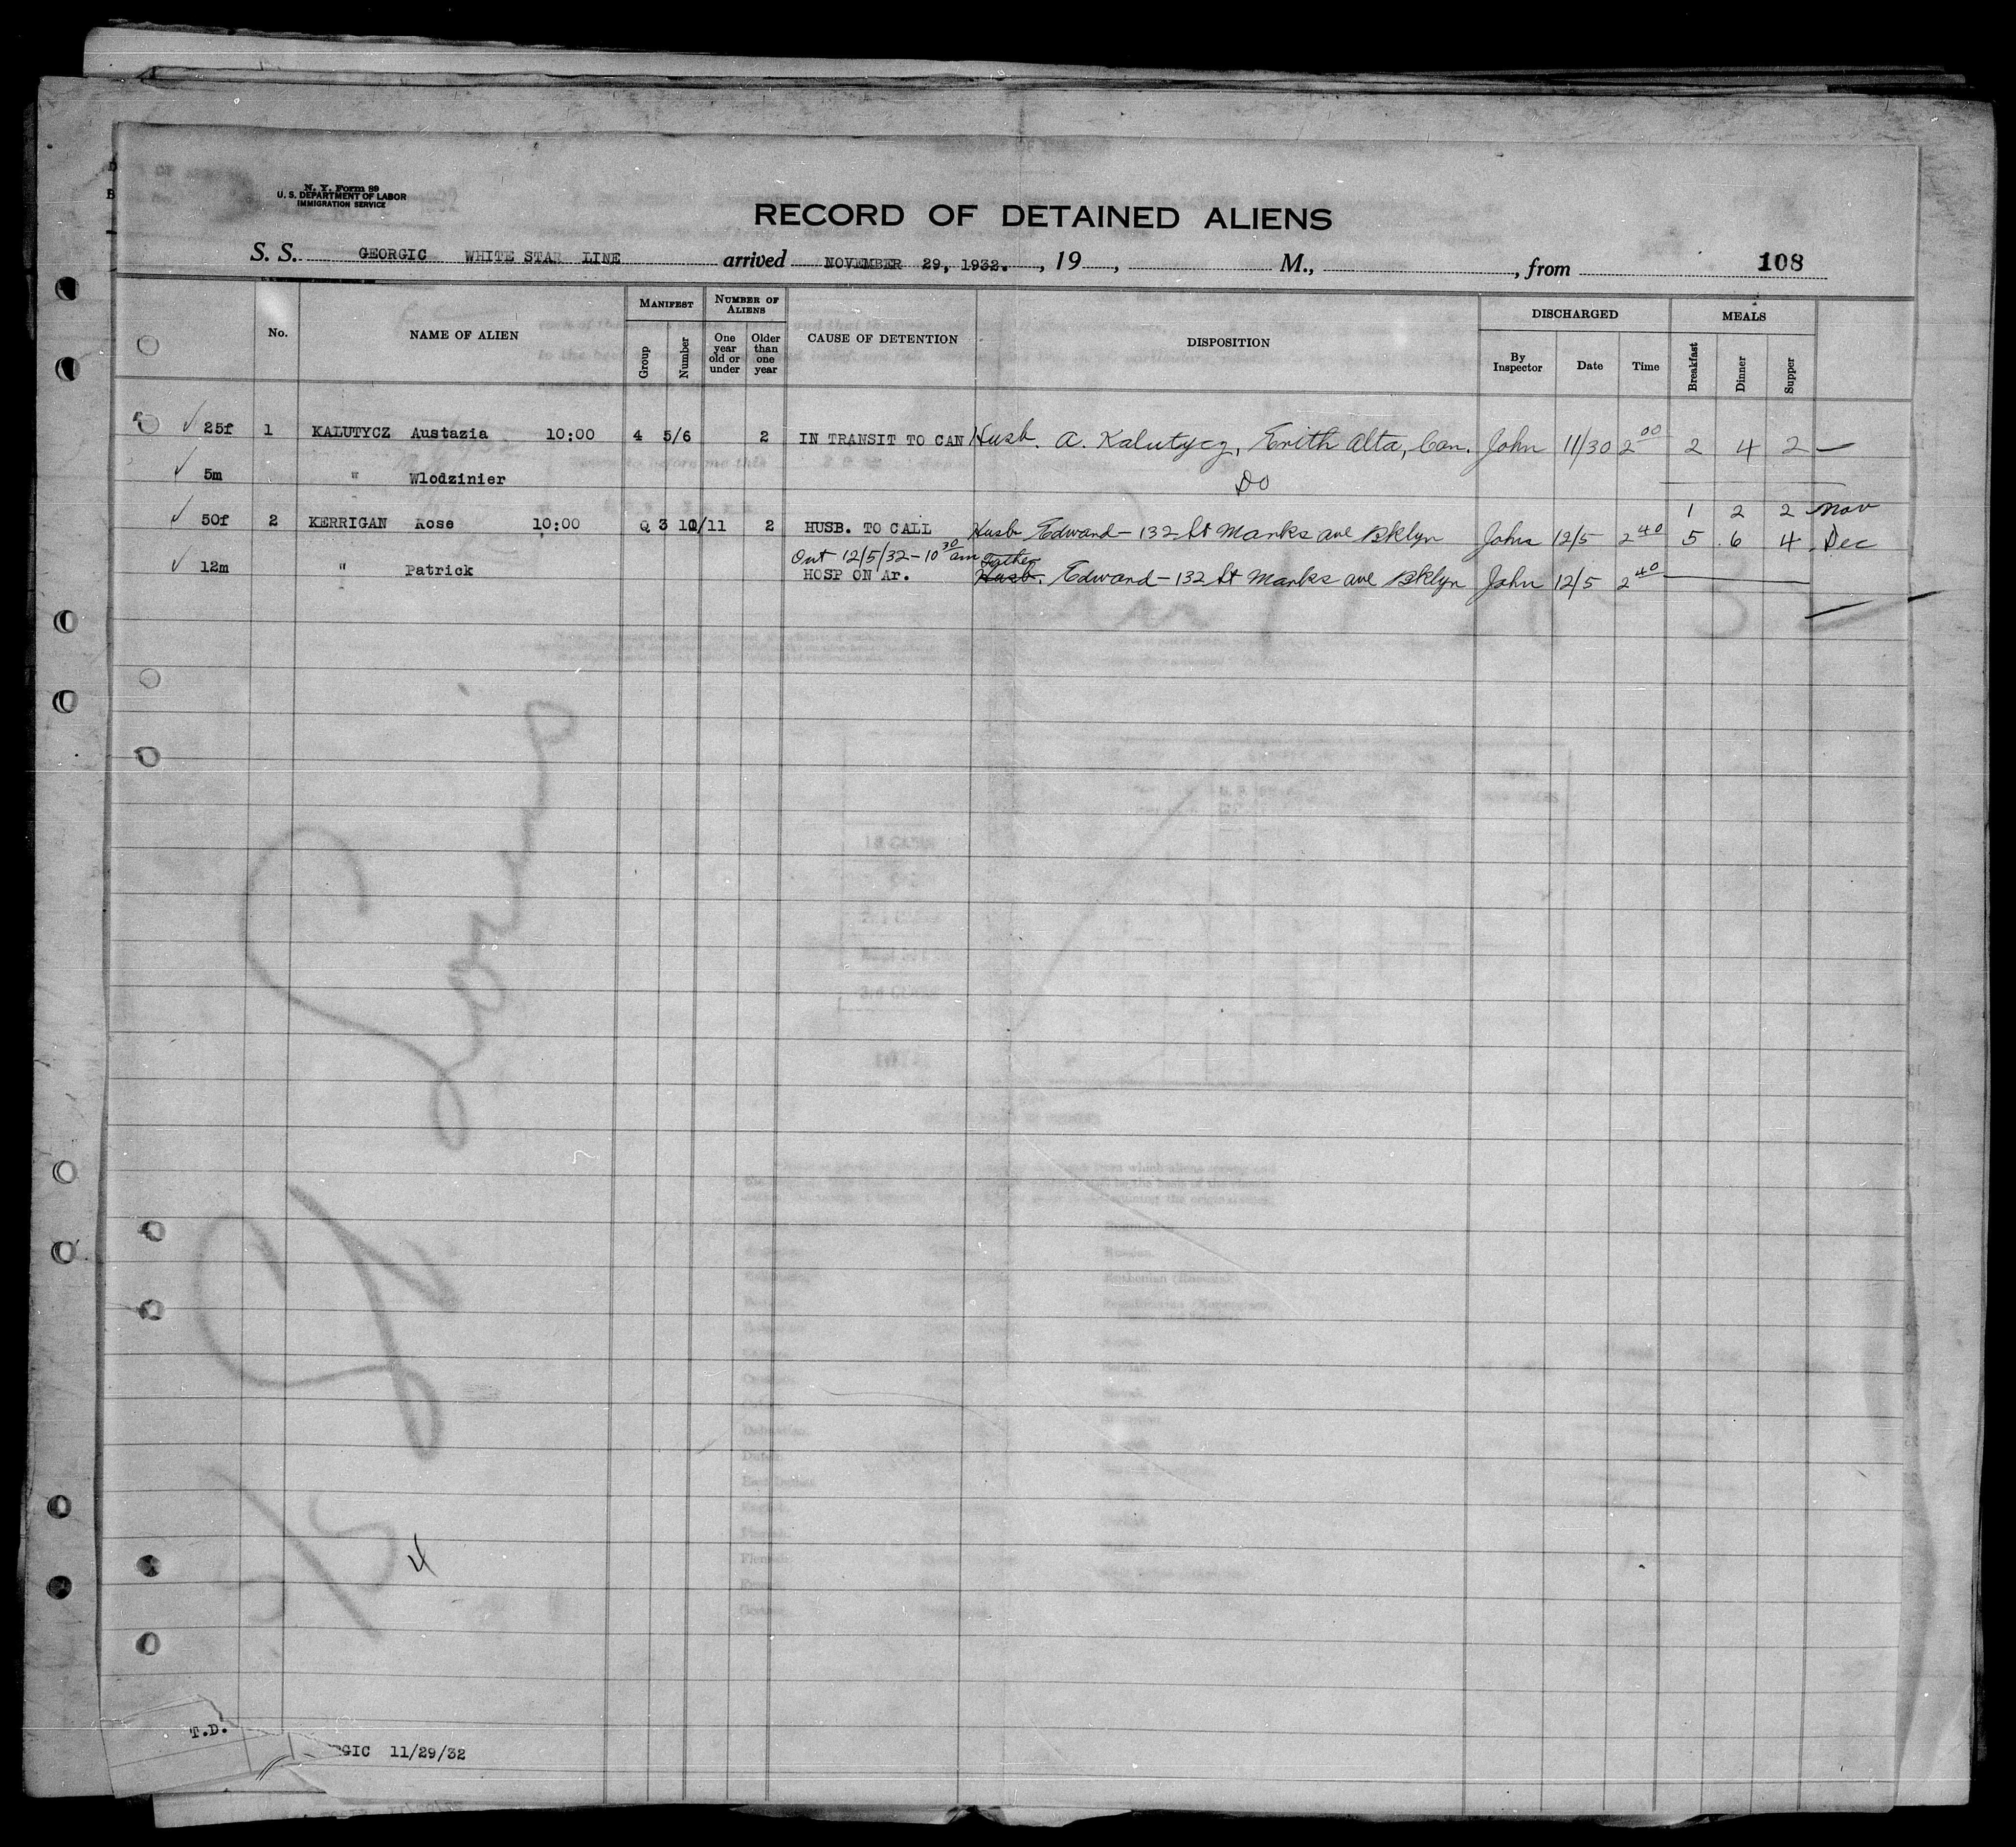 N. Y. Form 89
U. S. DEPARTMENT OF LABOR
IMMIGRATION SERVICE
RECORD OF DETAINED ALIENS
S. S. GEORGIC WHITE STAR LINE arrived NOVEMBER 29, 1932. , 19 , M., , from 108
No. NAME OF ALIEN MANIFEST Group Number NUMBER OF ALIENS One year old or under Older than one year CAUSE OF DETENTION DISPOSITION DISCHARGED By Inspector Date Time MEALS Breakfast Dinner Supper
✓ 25f 1 KALUTYCZ Austazia 10:00 4 5/6 2 IN TRANSIT TO CAN Husb. A. Kalutycz, Erith Alta, Can. John 11/30 2 00 2 4 2 —
✓ 5m " Wlodzinier Do
1 2 2 Nov
✓ 50f 2 KERRIGAN Rose 10:00 Q 3 10/11 2 HUSB. TO CALL Husb Edward - 132 St Marks ave Bklyn John 12/5 2 40 5 6 4 Dec
Out 12/5/32 - 10 30 am Father
✓ 12m " Patrick HOSP ON Ar. Husb. Edward - 132 St Marks ave Bklyn John 12/5 2 40
4
T.D.
RGIC 11/29/32